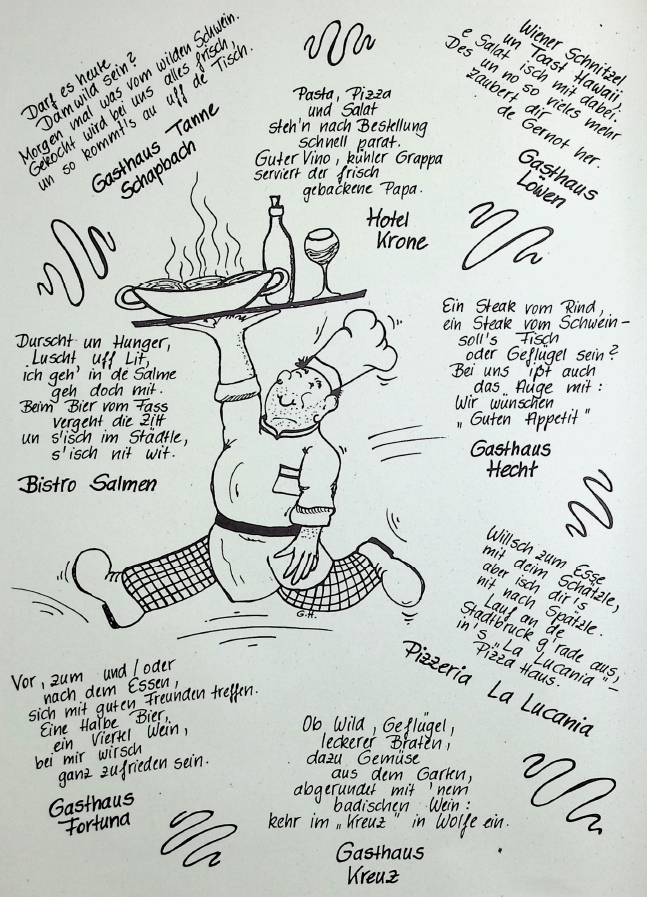 Darf es heute
Damwild sein?
Morgen mal was vom wilden Schwein.
Gekocht wird bei uns alles frisch,
un so kommt's au uff de Tisch.
Gasthaus Tanne
Schapbach
Pasta, Pizza
und Salat
steh'n nach Bestellung
schnell parat.
Guter Vino, kühler Grappa
serviert der frisch
gebackene Papa.
Hotel
Krone
Wiener Schnitzel
un Toast Hawaii,
e Salat isch mit dabei.
Des un no so vieles mehr
zaubert dir
de Gernot her.
Gasthaus
Löwen
Durscht un Hunger,
Luscht uff Lit,
ich geh' in de Salme
geh doch mit.
Beim Bier vom Fass
vergeht die Zitt
un s'isch im Städtle,
s'isch nit wit.
Bistro Salmen
Ein Steak vom Rind,
ein Steak vom Schwein –
soll's Fisch
oder Geflügel sein?
Bei uns ißt auch
das Auge mit:
Wir wünschen
„Guten Appetit"
Gasthaus
Hecht
Willsch zum Esse
mit deim Schätzle,
aber isch dir's
nit nach Spätzle.
Lauf an de
Stadtbruck g'rade aus,
in's „La Lucania" –
Pizza Haus.
Pizzeria La Lucania
G.H.
Vor, zum und/oder
nach dem Essen,
sich mit guten Freunden treffen.
Eine Halbe Bier,
ein Viertel Wein,
bei mir wirsch
ganz zufrieden sein.
Gasthaus
Fortuna
Ob Wild, Geflügel,
leckerer Braten,
dazu Gemüse
aus dem Garten,
abgerundet mit 'nem
badischen Wein:
kehr im „Kreuz" in Wolfe ein.
Gasthaus
Kreuz